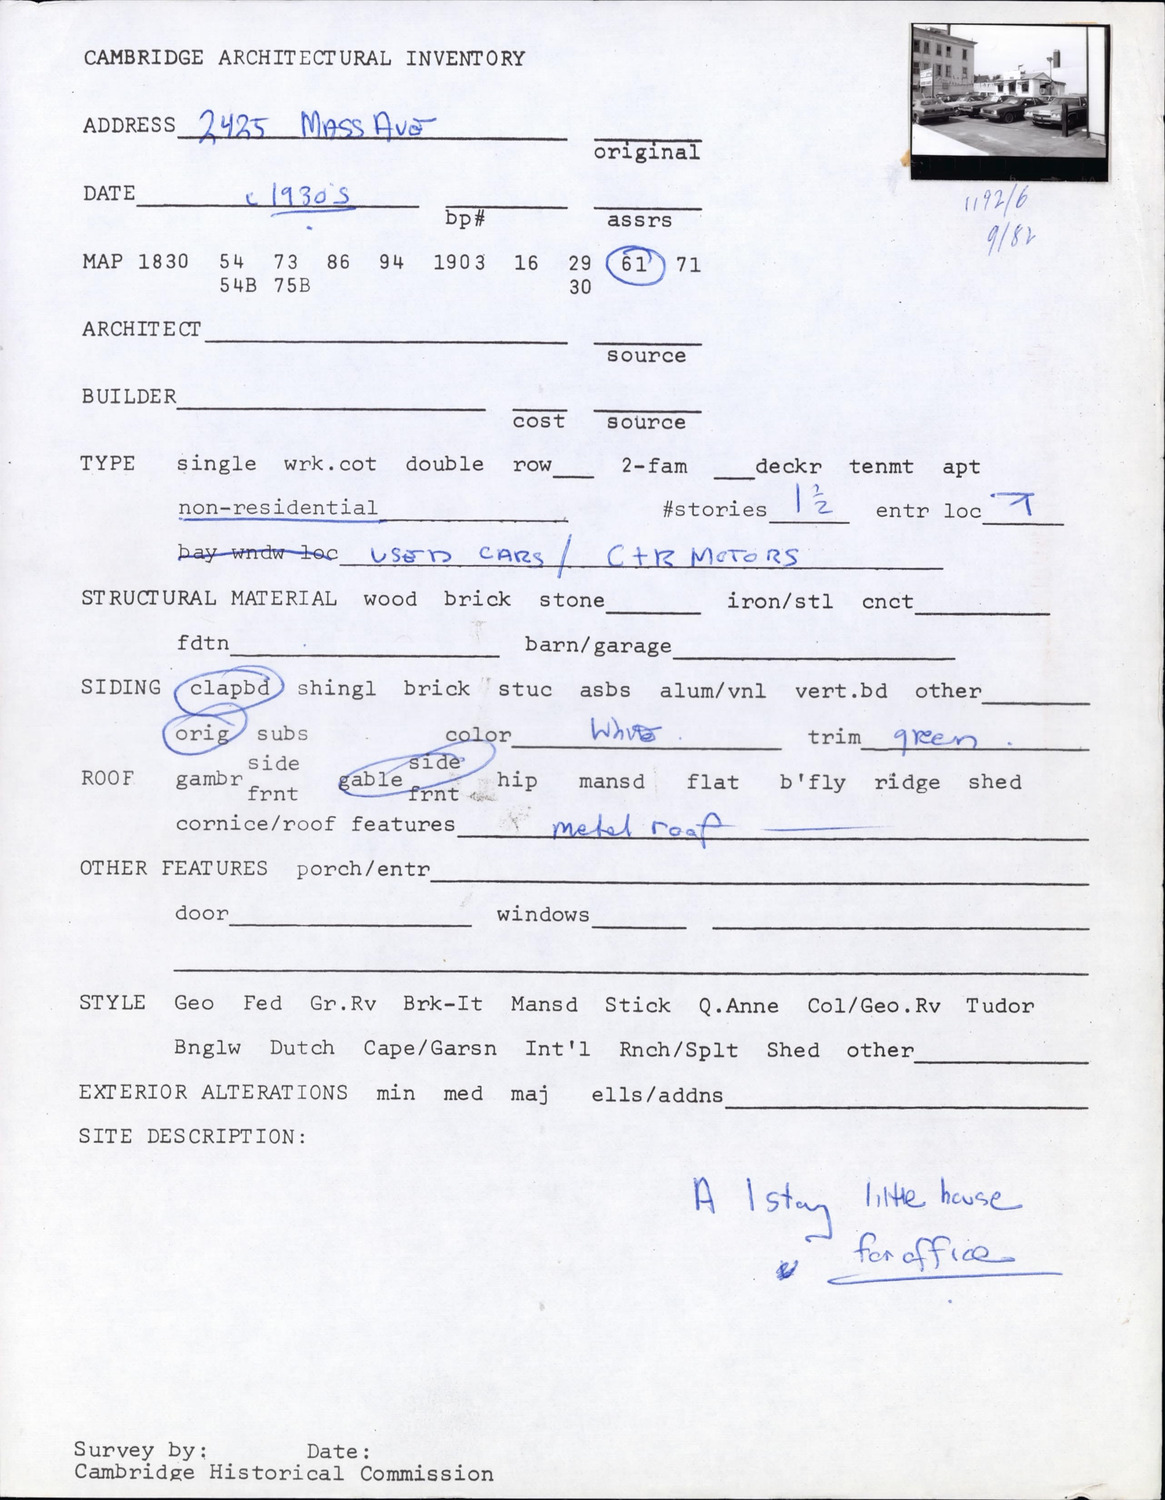 CAMBRIDGE ARCHITECTURAL INVENTORY
ADDRESS 2425 MASS AVE
original
DATE c 1930's
bp# assrs
1192/6
9/82
MAP 1830 54 73 86 94 1903 16 29 61 71
54B 75B 30
ARCHITECT
source
BUILDER
cost source
TYPE single wrk.cot double row 2-fam deckr tenmt apt
non-residential #stories 1 1/2 entr loc
bay wndw loc USED CARS / C+R MOTORS
STRUCTURAL MATERIAL wood brick stone iron/stl cnct
fdtn barn/garage
SIDING clapbd shingl brick stuc asbs alum/vnl vert.bd other
orig subs color White trim green
ROOF gambr side frnt gable side frnt hip mansd flat b'fly ridge shed
cornice/roof features metal roof
OTHER FEATURES porch/entr
door windows
STYLE Geo Fed Gr.Rv Brk-It Mansd Stick Q.Anne Col/Geo.Rv Tudor
Bnglw Dutch Cape/Garsn Int'l Rnch/Splt Shed other
EXTERIOR ALTERATIONS min med maj ells/addns
SITE DESCRIPTION:
A 1 story little house
for office
Survey by: Date:
Cambridge Historical Commission